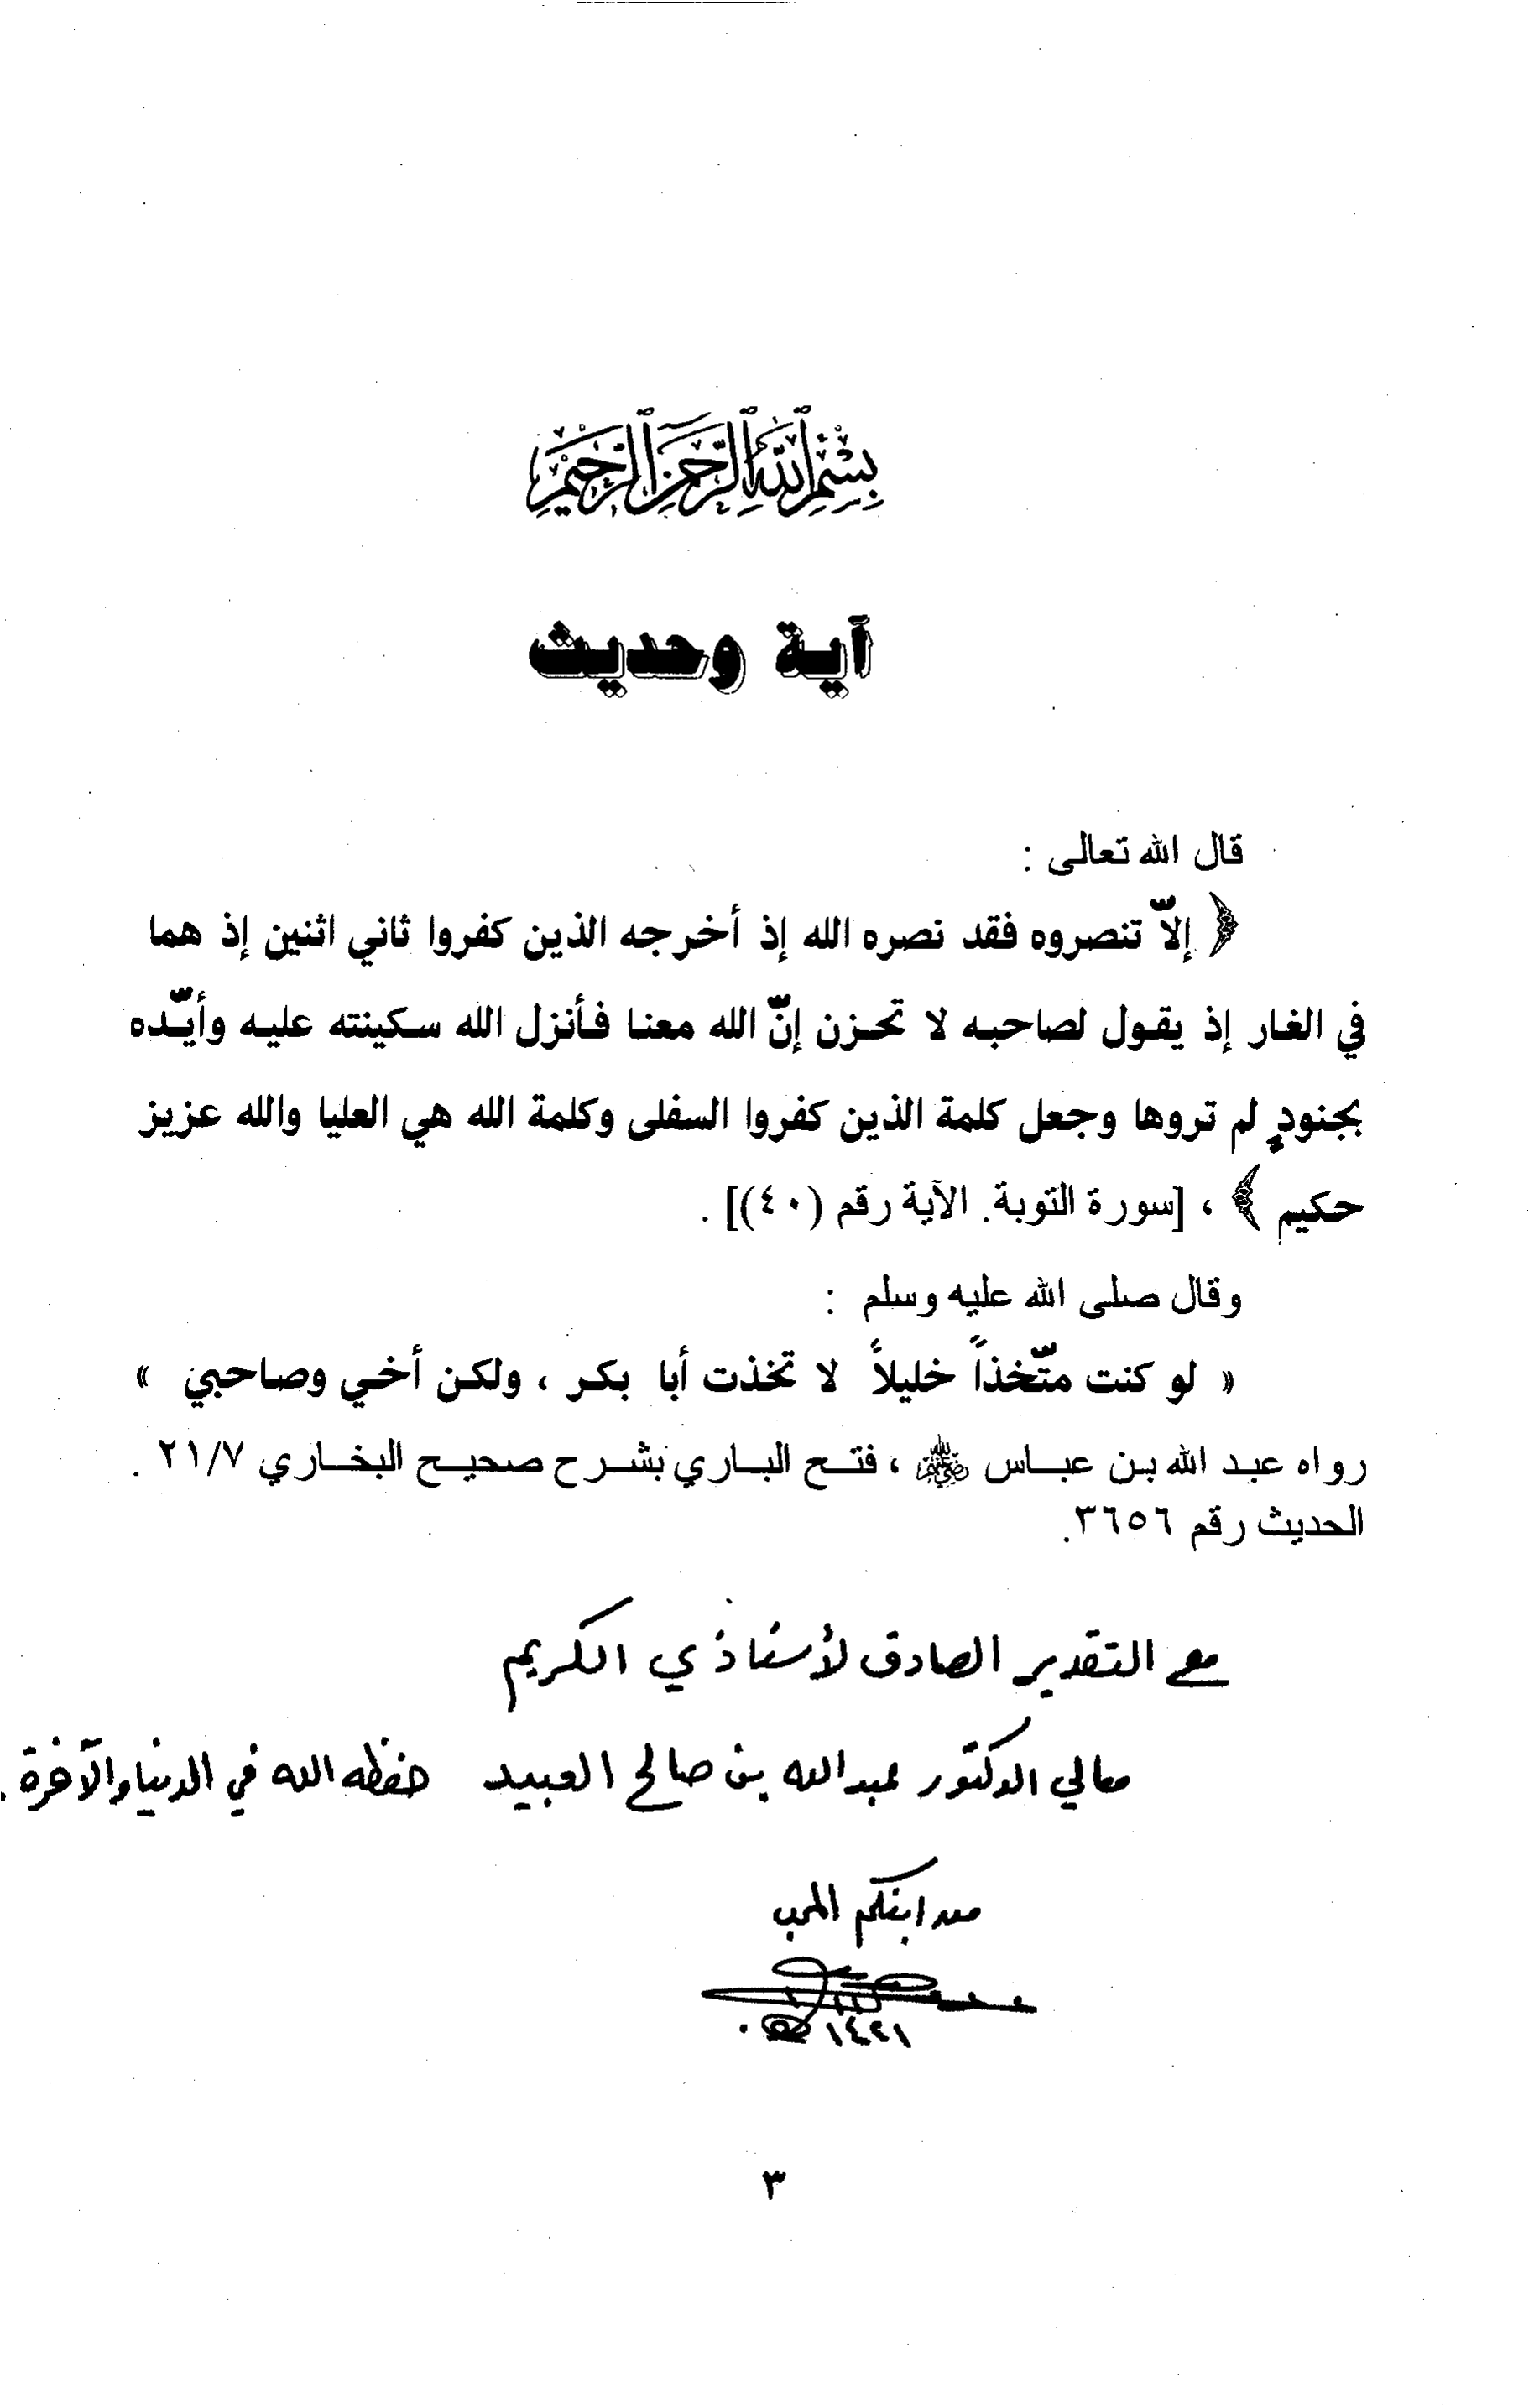 بِسْمِ اللَّهِ الرَّحْمَٰنِ الرَّحِيمِ
آية وحديث
قال الله تعالى :
﴿ إلاّ تنصروه فقد نصره الله إذ أخرجه الذين كفروا ثاني اثنين إذ هما
في الغار إذ يقول لصاحبه لا تحزن إنّ الله معنا فأنزل الله سكينته عليه وأيّده
بجنودٍ لم تروها وجعل كلمة الذين كفروا السفلى وكلمة الله هي العليا والله عزيز
حكيم ﴾ ، [سورة التوبة. الآية رقم (٤٠)] .
وقال صلى الله عليه وسلم :
« لو كنت متّخذاً خليلاً لا تخذت أبا بكر ، ولكن أخي وصاحبي »
رواه عبد الله بن عباس ، فتح الباري بشرح صحيح البخاري ٢١/٧ .
الحديث رقم ٣٦٥٦.
مع التقدير الصادق لأستاذي الكريم
معالي الدكتور عبدالله بن صالح العبيد حفظه الله في الدنيا والآخرة .
من ابنكم المحب
١٤٢١
٣